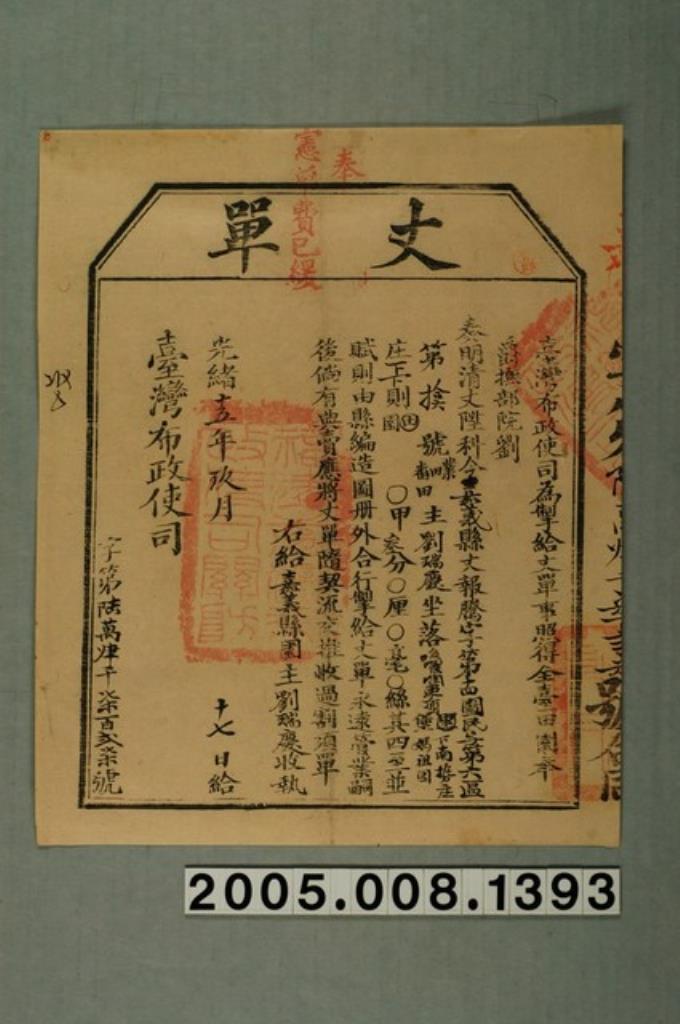 奉
憲單費已緩
丈單
臺灣布政使司為掣給丈單事照得全臺田園奉
爵撫部院劉
奏明清丈陞科今嘉義縣丈報騰字第
國民字第六區
號
主劉瑞慶坐落
庄下則園
〇甲叁分〇厘〇毫〇絲其四至並
賦則由縣編造圖册外合行掣給丈單永遠管業嗣
後倘有典賣應將丈單隨契流交推收過割須單
右給嘉義縣園主劉瑞慶收執
光緒十五年玖月
十七日給
臺灣布政使司
字第陸萬肆千柒百貳柒號
2005.008.1393